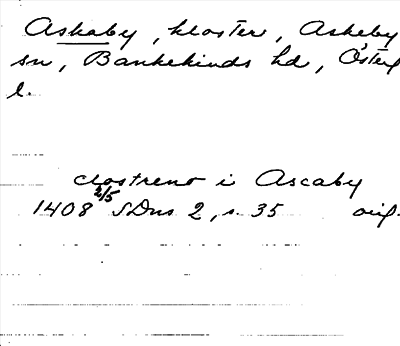 Askaby, kloster, Askeby
sn, Bankekinds hd, Österg
l.
clostreno i Ascaby
1408 2/5 SDns 2, s. 35 orig.